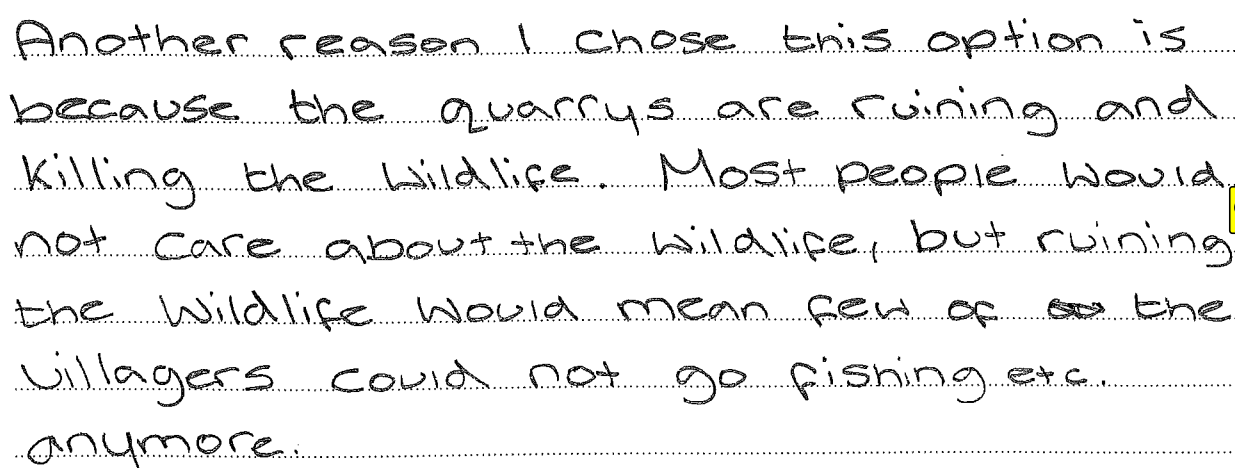 Another reason I chose this option is
because the quarrys are ruining and
killing the wildlife. Most people would
not care about the wildlife, but ruining
the wildlife would mean few of the
villagers could not go fishing etc.
anymore.